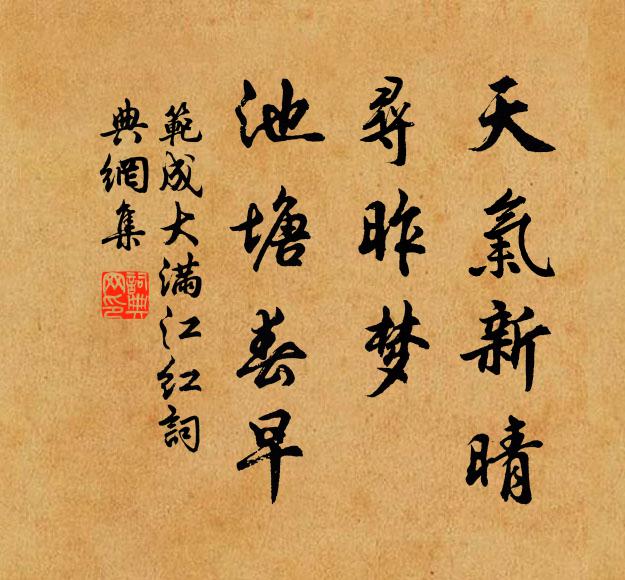 天氣新晴
尋昨梦
池塘春早
範成大满江红詞
典網集
詞典网印